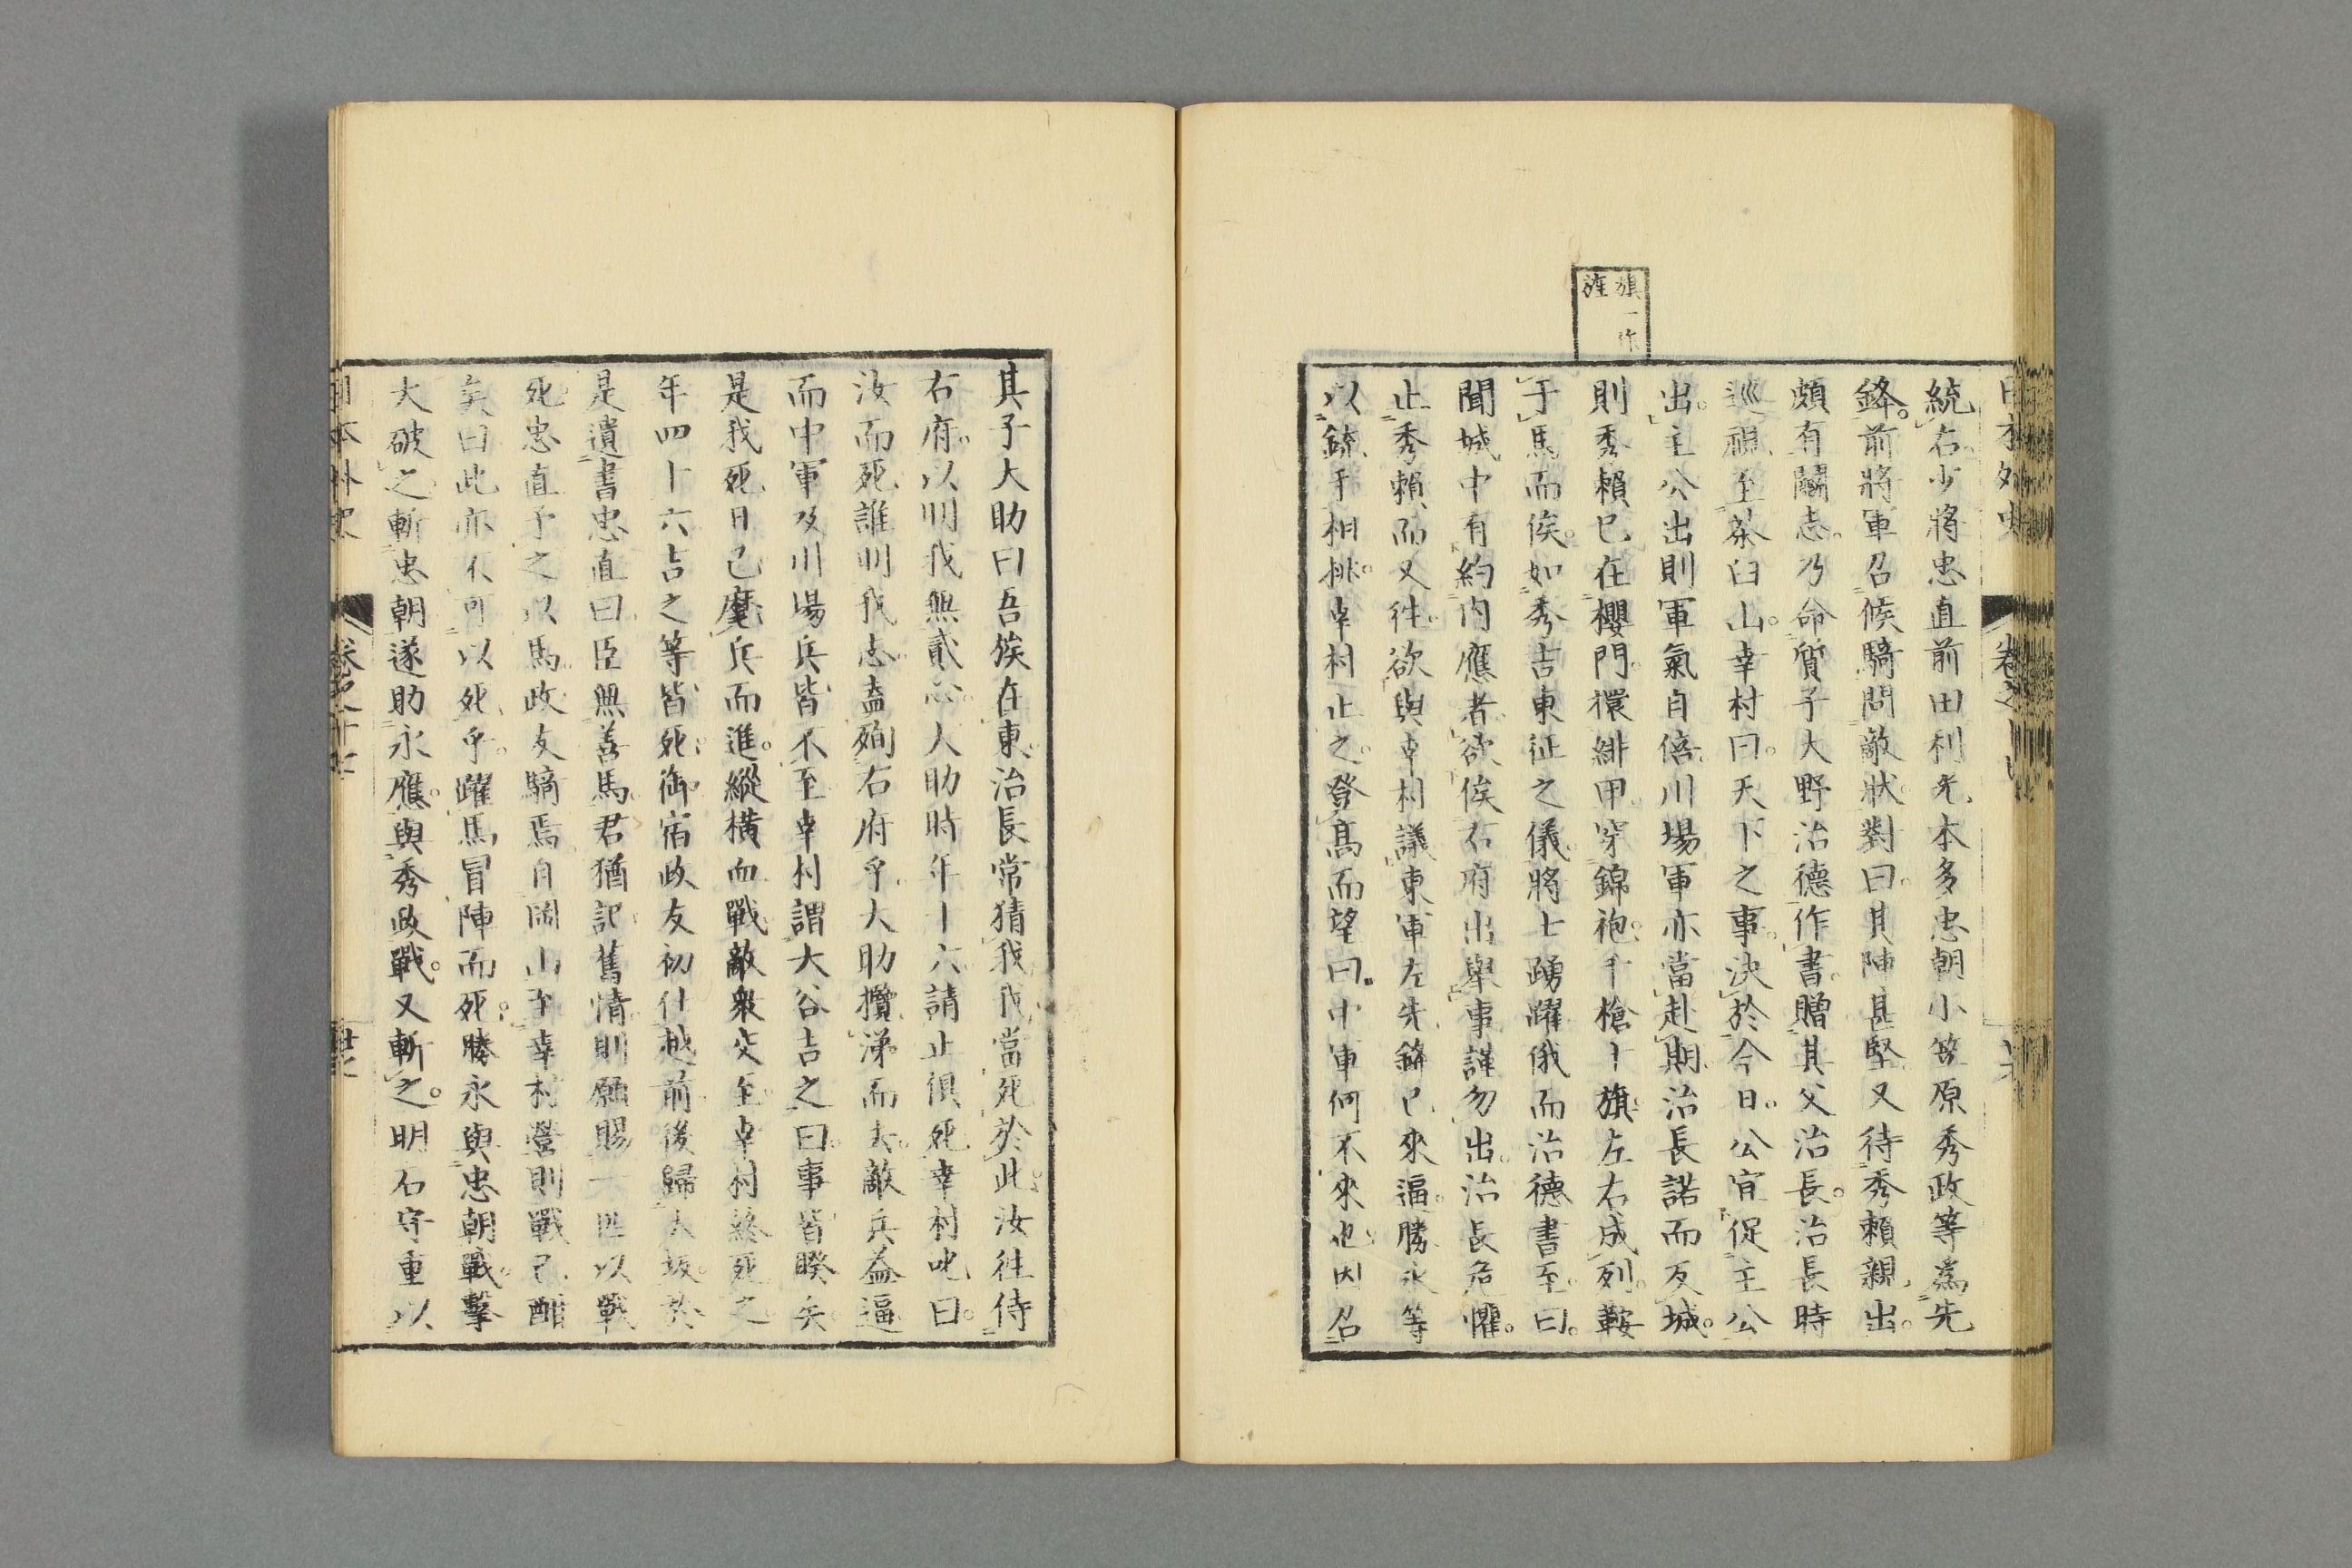 日本外史
卷之
旗一作
旌
統。右少將忠直前田利光本多忠朝小笠原秀政等爲先
鋒。前將軍召候騎問敵狀。對曰。其陣甚堅又待秀賴親出。
頗有鬭志。乃命質子大野治德作書。贈其父治長。治長時
巡視至茶臼山。幸村曰。天下之事。決於今日。公宜促主公
出。主公出則軍氣自倍。川場軍亦當赴期。治長諾而反城。
則秀賴已在櫻門。擐緋甲。穿錦袍。千槍十旗。左右成列。鞍
于馬而俟。如秀吉東征之儀。將士踴躍俄而治德書至。曰。
聞城中有約内應者。欲俟右府出擧事。謹勿出。治長危懼。
止秀賴。而又往。欲與幸村議。東軍左先鋒已來逼。勝永等
以銃手相挑。幸村止之。登高而望曰。中軍何不來也。因召
其子大助曰。吾候在東。治長常猜我。我當死於此。汝往侍
右府。以明我無貳心。大助時年十六。請止倶死。幸村叱曰。
汝而死。誰明我志。盍殉右府乎。大助攬涕而去。敵兵益逼
而中軍及川場兵皆不至。幸村謂大谷吉之曰。事皆睽矣。
是我死日已。麾兵而進。縱横血戰。敵衆交至。幸村終死之
年四十六。吉之等皆死。御宿政友初仕越前。後歸大坂。於
是遺書忠直曰。臣無善馬。君猶記舊情。則願賜一匹以戰
死。忠直予之以馬。政友騎焉。自岡山至幸村營。則戰已酣
矣。曰此亦不可以死乎。躍馬冒陣而死。勝永與忠朝戰。撃
大破之斬忠朝。遂助永應。與秀政戰。又斬之。明石守重以
日本外史
卷之廿二